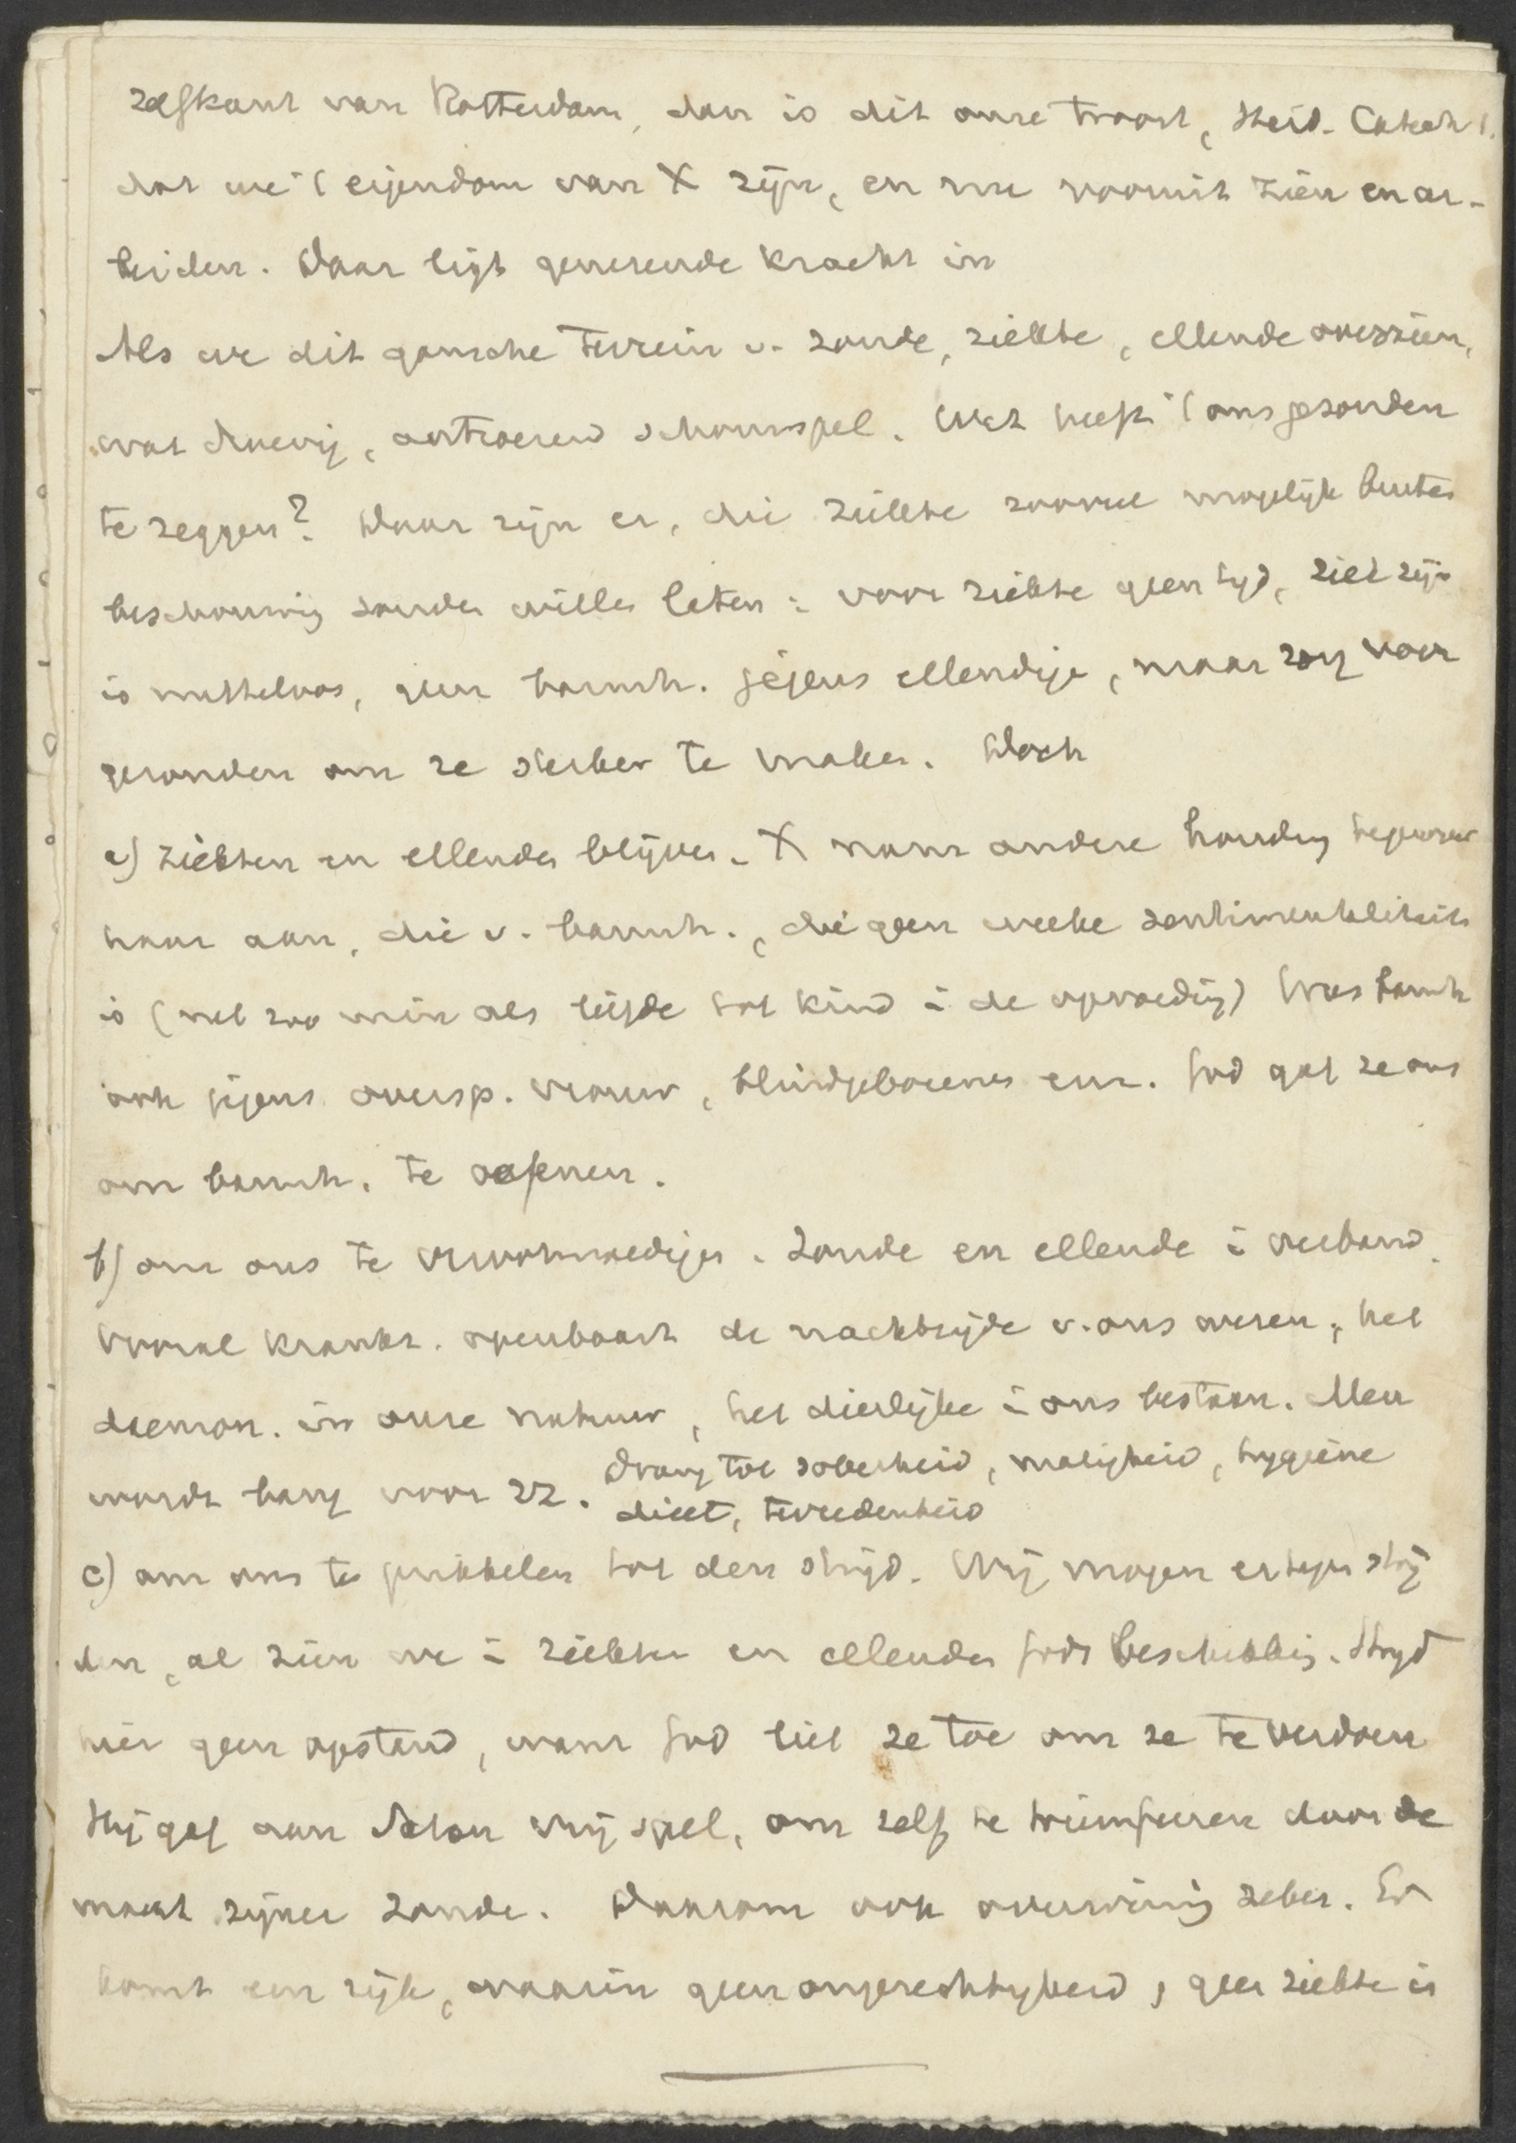 zelfkant van Rotterdam, dan is dit onze troost, Heid. Catech 1.
dat we 't eigendom van X zijn, en nu vooruit zien en ar-
beiden. Daar ligt genezende kracht in
Als we dit gansche terrein v. zonde, ziekte, ellende overzien,
wat droevig, ontroerend schouwspel. Wat heeft 't ons gezonden
te zeggen? Daar zijn er, die ziekte zooveel mogelijk buiten
beschouwing zouden willen laten: voor ziekte geen tijd, ziek zijn
is nutteloos, geen barmh. jegens ellendige, maar zorg voor
gezonden om ze sterker te maken. Doch
a) ziekten en ellenden blijven. X nam andere houding
aan, die v. barmh., die geen weeke sentimentaliteit
is (net zoo min als liefde tot kind i de opvoeding) Was barmh
ook jegens oversp. vrouw, blindgeborenen enz. God gaf ze ons
om barmh. te oefenen.
b) om ons te verootmoedigen. Zonde en ellende i verband.
Vooral krankz. openbaart de nachtzijde v. ons wezen, het
daemon. in onze natuur, het dierlijke i ons bestaan. Men
wordt bang voor zz. Drang tot soberheid, matigheid, hygiëne
dieet, tevredenheid
c) om ons te prikkelen tot den strijd. Wij mogen ertegen strij
den, al zien we i ziekten en ellenden Gods beschikking. Strijd
hier geen opstand, want God liet ze toe om ze te verdoen
Hij gaf aan Satan vrij spel, om zelf te triumfeeren door de
macht zijner zonde. Daarom ook overwinning zeker. Er
komt een rijk, waarin geen ongerechtigheid, geen ziekte is